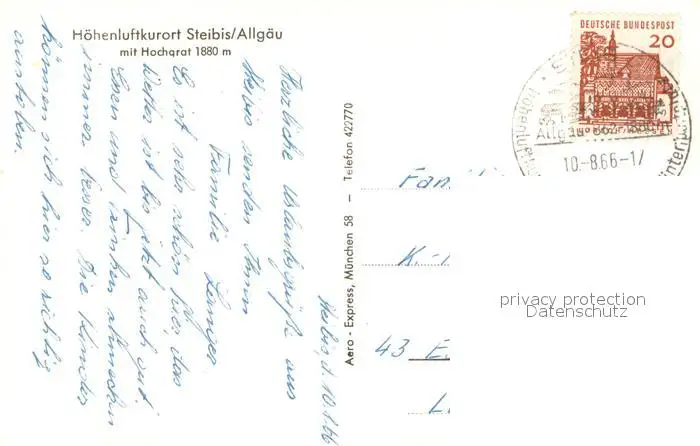 Höhenluftkurort Steibis/Allgäu
mit Hochgrat 1880 m
Steibis, d. 10.8.66
Herzliche Urlaubsgrüße aus
Steibis senden Ihnen
Familie Langer
Es ist sehr schön hier, das
Wetter ist bis jetzt auch gut.
Essen und Trinken schmecken
immer besser. Die Kinder
können sich hier so richtig
austoben.
Aero - Express, München 58 — Telefon 422770
DEUTSCHE BUNDESPOST
20
10.-8.66-17
Fam
K.-
43 E
L
privacy protection
Datenschutz